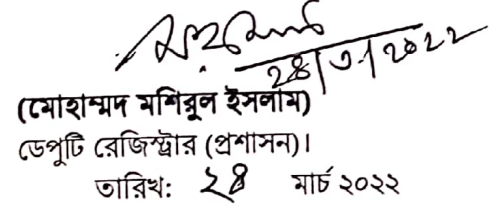 ২৪|৩|২০২২
(মোহাম্মদ মশিরুল ইসলাম)
ডেপুটি রেজিস্ট্রার (প্রশাসন)।
তারিখ: ২৪ মার্চ ২০২২